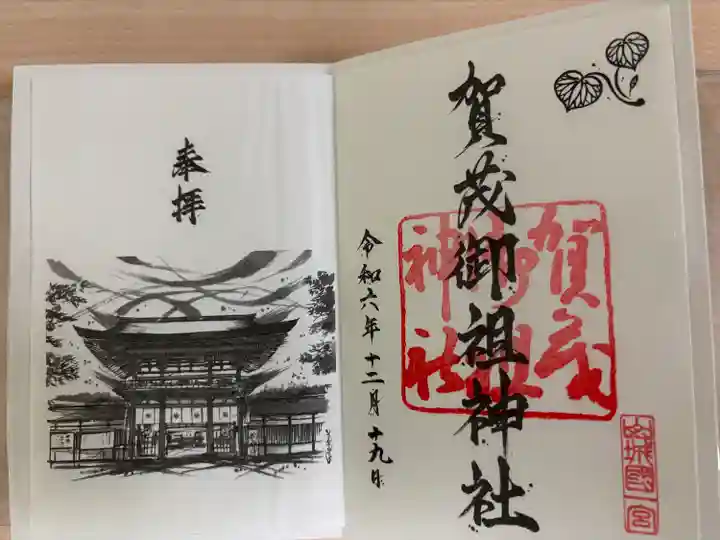 賀茂御祖神社
賀茂御祖神社
山城國一宮
令和六年十二月十九日
奉拝